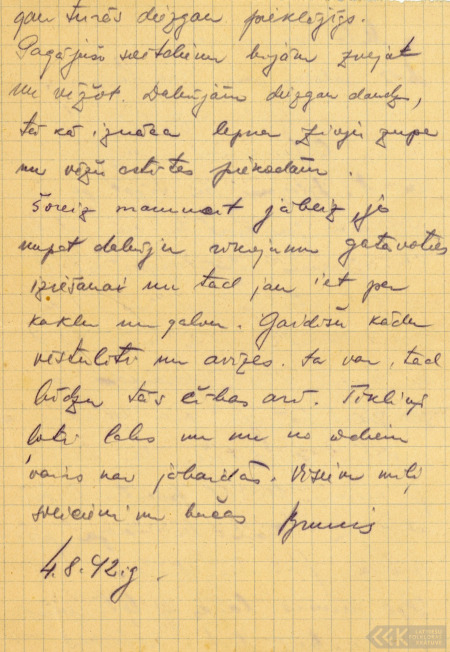 gan turās diezgan pieklājīgs.
Pagājušo svētdienu bijām zvejot
un vēžot. Dabūjām diezgan daudz,
tā kā iznāca lepna zivju zupa
un vēžu astītes piekodām.
Šoreiz mammit jābeidz, jo
nupat dabūju rīkojumu gatavoties
iziešanai un tad jau iet par
kaklu un galvu. Gaidīšu kādu
vēstulīti un avīzes. Ja var, tad
lūdzu tās čības arī. Tīkliņš
ļoti labs un nu no odiem
vairs nav jābaidās. Visiem mīļi
sveicieni un bučas Brunis
4.8.42.g.